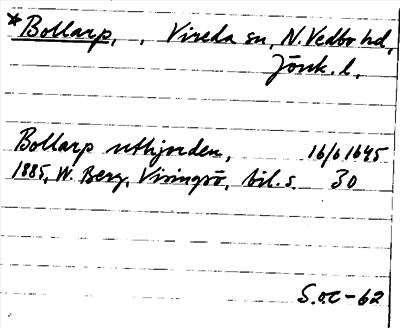 *Bollarp, , Vireda sn, N. Vedbo hd,
Jönk. l.
Bollarp uthjorden, 16/6 1645
1885, W. Berg, Visingsö, bil. s. 30
S.OC-62